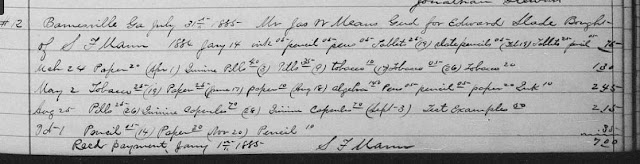 Jonathan
#12 Barnesville Ga July 31st 1885 Mr Jas W Means Gurd for Edward Slade Bought
of S F Mann 1884 Jany 14 ink 05 pencil 05 pens 05 Tablet (19) slate pencil 05 Tablet 25 pencil 05 75
Mch 24 Paper 20 (Apr 1) Quinine Pills (3) Pills (9) tobacco 10 (17) tobacco 05 (26) Tobacco 20 130
May 2 Tobacco (19) Paper (June 17) paper 10 (Aug 18) algebra Pens 05 pencil 05 paper 20 Ink 10 2.45
Aug 25 Pills 25 (26) Quinine Capsules (28) Quinine Capsules 20 (Sept-3) Test Examples 2.15
Oct-1 Pencil 05 (14) Paper 20 Nov 20) Pencil 10 35
Recd payment, Jany 1st 1885 S F Mann 7.00